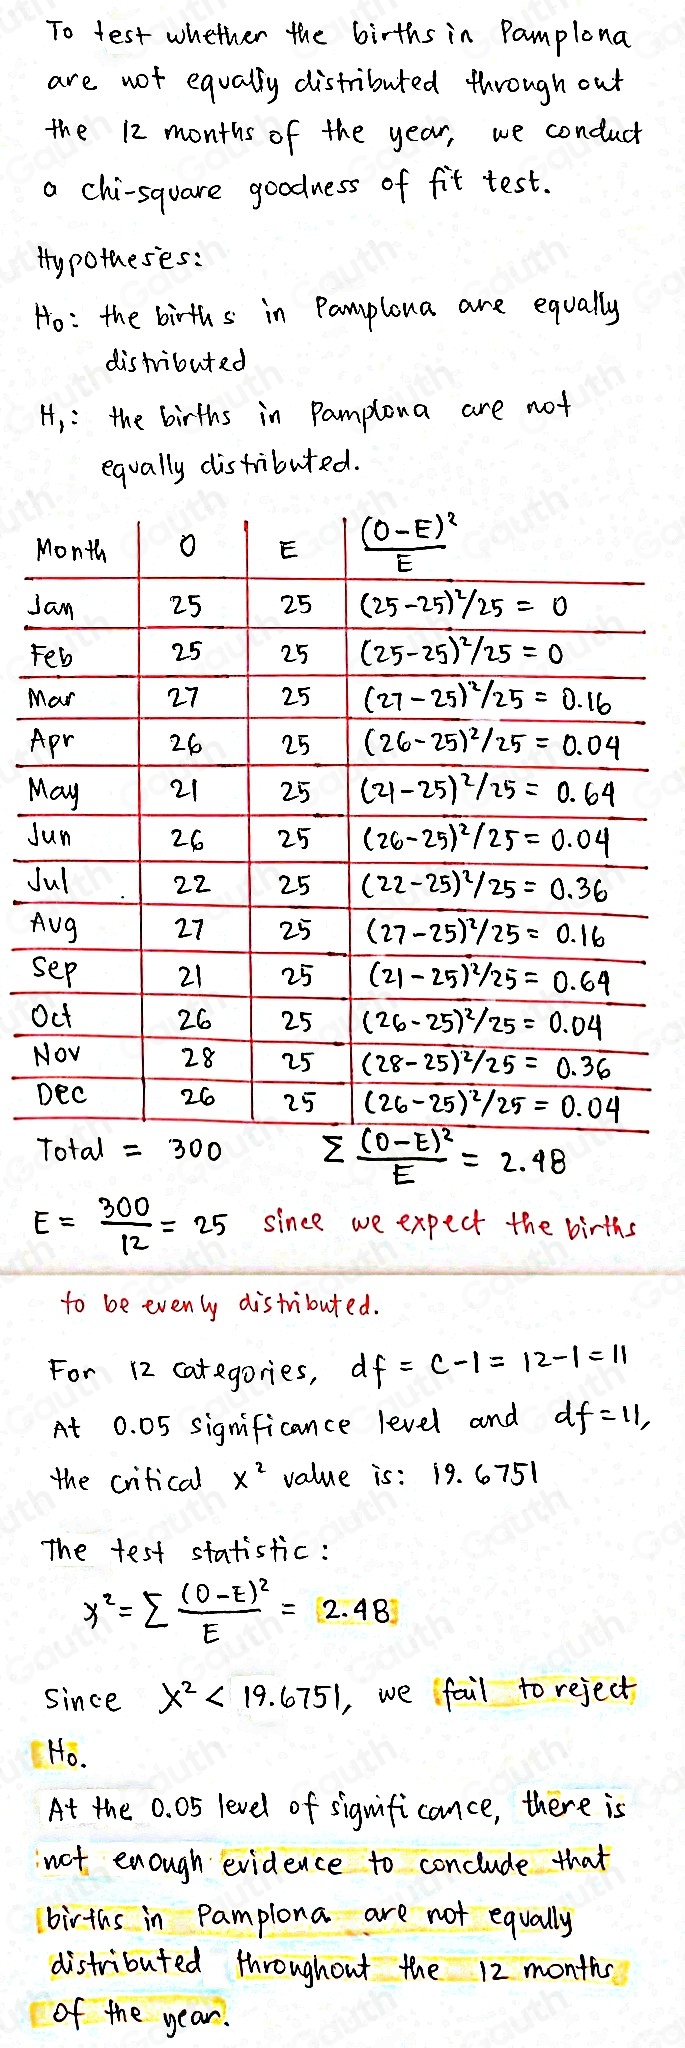 To test whether the births in Pamplona
are not equally distributed throughout
the 12 months of the year, we conduct
a chi-square goodness of fit test.
Hypotheses:
H₀: the births in Pamplona are equally
distributed
H₁: the births in Pamplona are not
equally distributed.
Month | O | E | (O-E)²/E
Jan | 25 | 25 | (25-25)²/25 = 0
Feb | 25 | 25 | (25-25)²/25 = 0
Mar | 27 | 25 | (27-25)²/25 = 0.16
Apr | 26 | 25 | (26-25)²/25 = 0.04
May | 21 | 25 | (21-25)²/25 = 0.64
Jun | 26 | 25 | (26-25)²/25 = 0.04
Jul | 22 | 25 | (22-25)²/25 = 0.36
Aug | 27 | 25 | (27-25)²/25 = 0.16
Sep | 21 | 25 | (21-25)²/25 = 0.64
Oct | 26 | 25 | (26-25)²/25 = 0.04
Nov | 28 | 25 | (28-25)²/25 = 0.36
Dec | 26 | 25 | (26-25)²/25 = 0.04
Total = 300 Σ (O-E)²/E = 2.48
E = 300/12 = 25 since we expect the births
to be evenly distributed.
For 12 categories, df = C-1 = 12-1 = 11
At 0.05 significance level and df = 11,
the critical x² value is: 19.6751
The test statistic:
x² = Σ (O-E)²/E = 2.48
Since X² < 19.6751, we fail to reject
H₀.
At the 0.05 level of significance, there is
not enough evidence to conclude that
births in Pamplona are not equally
distributed throughout the 12 months
of the year.